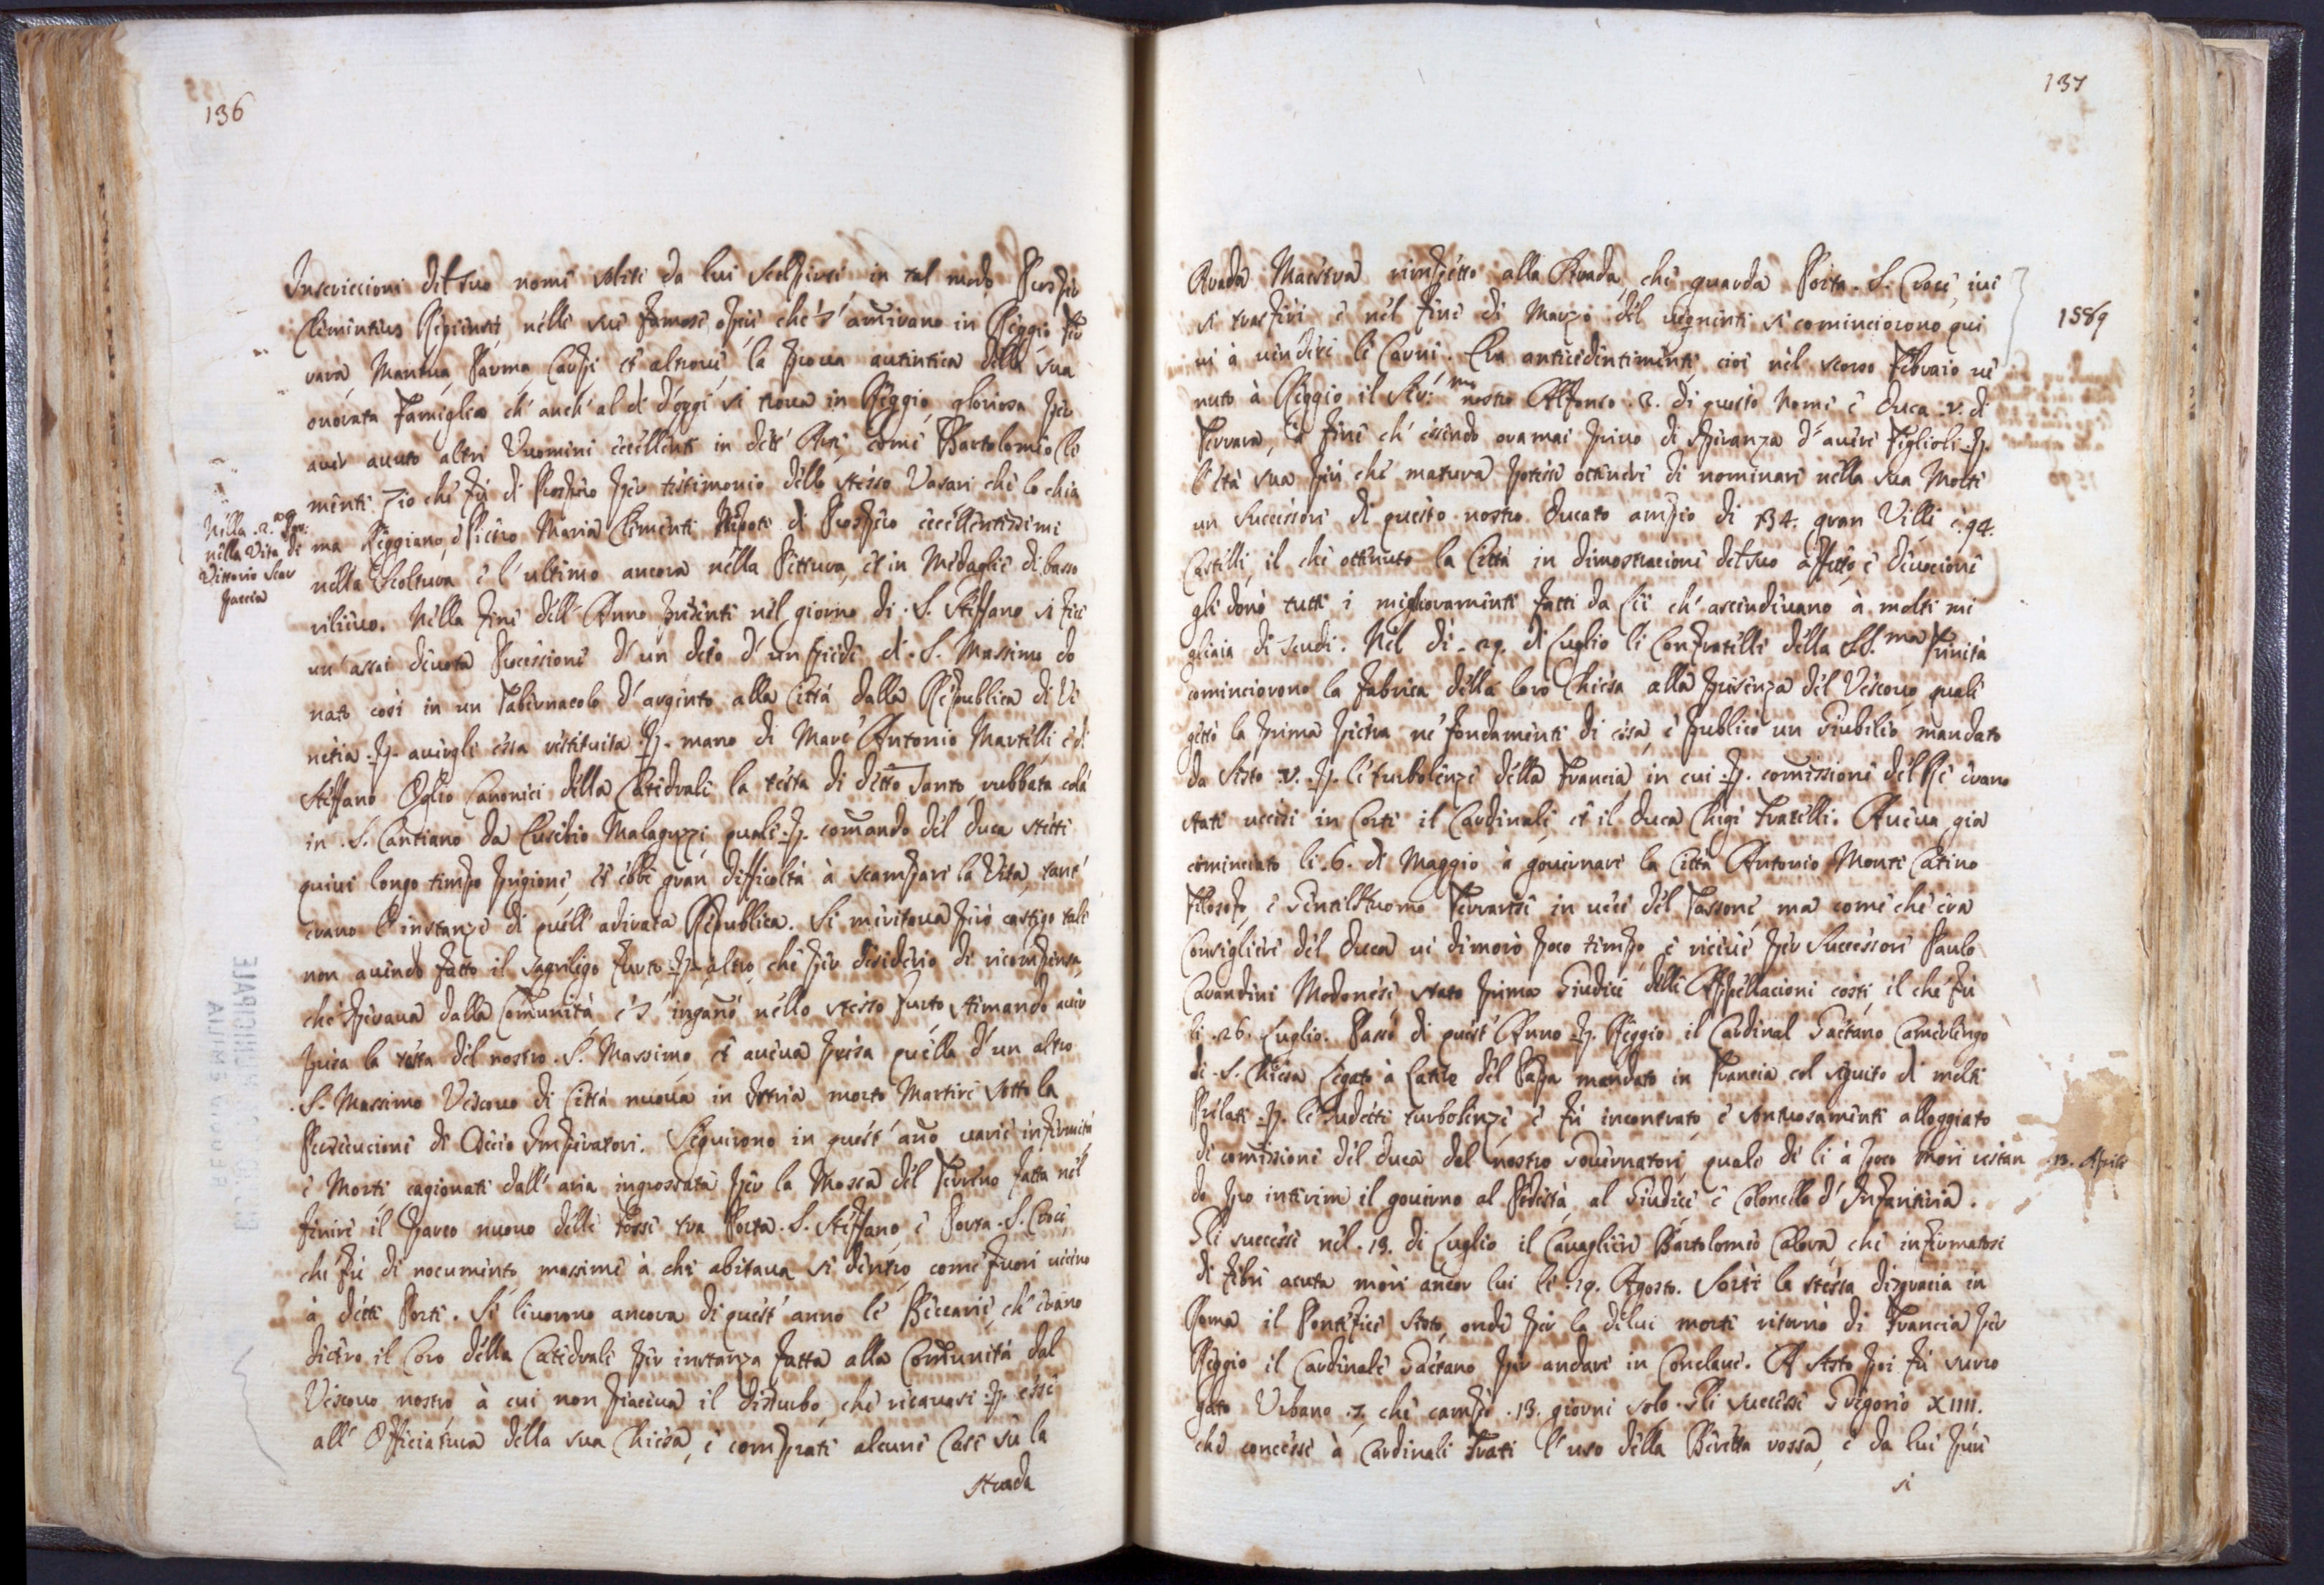 136
Inscriccioni del suo nome solite da lui scolpirsi in tal modo Prosper
Clementius Regiensis nelle sue famose opere che s'amirano in Reggio Fer
rara Mantua Parma Carpi et altroue la proua autintica della sua
onorata Famiglia ch'anch'al di d'oggi si troua in Reggio gloriosa per
auer auuto altri Vuomini eccellenti in dett'Arte, come Bartolomeo Cle
menti zio che fù di Prospero per testimonio dello stesso Vasari che lo chia
ma Reggiano, e Pietro Maria Clementi Nipote di Prospero eccellentissimi
nella Scoltura e l'ultimo ancora nella Pittura, et in Medaglie di basso
rilieuo. Nella fine dell'Anno presente nel giorno di .S. Steffano si fece
un'assai deuota Processione d'un deto d'un piede di .S. Massimo do
nato così in un Tabernacolo d'argento alla Città dalla Republica di Ve
netia .p. auergli essa restituita .p. mano di Marc'Antonio Martelli e di
Steffano Oglio Canonici della Catedrale la testa di detto Santo rubbata colà
in .S. Cantiano da Eusebio Malaguzzi quale .p. comando del Duca stette
quiui longo tempo prigione, et ebbe gran difficoltà à scampare la Vita, tant'
erano l'instanze di quell'adirata Republica. Si meritaua però castigo tale
non auendo fatto il sagrilego furto .p. altro, che per desiderio di ricompensa
che speraua dalla Comunità e s'inganò nello stesso furto stimando auer
presa la testa del nostro .S. Massimo, et aueua presa quella d'un altro
.S. Massimo Vescouo di Città nuoua in Istria morto Martire sotto la
Persecucione di Decio Imperatore. Seguirono in quest'ano uarie infirmità
e Morti cagionati dall'aria ingrossata per la Mossa del Terreno fatta nel
finire il parco nuouo delle Fosse tra Porta .S. Steffano, e Porta .S. Croce,
che fù di nocumento massime à chi abitaua si dentro come fuori uicino
à dette Porte. Si leuorono ancora di quest'anno le Beccarie, ch'erano
dietro il Coro della Catedrale per instanza fatta alla Comunità dal
Vescouo nostro à cui non piaceua il disturbo che ricauasi .p. esse
all'Officiatura della sua Chiesa, e comprate alcune Case sù la
strada
Nella .2.
nella Vita di
Vittorio Scar
paccia
137
Strada Maestra rimpetto alla Strada che guarda Porta .S. Croce, iui
si trasferì e nel fine di Marzo del uegnente si cominciorono qui
ui à uendere le Carni. Era anticedentemente cioè nel scorso Febraio ue
nuto à Reggio il Ser:mo nostro Alfonso .2. di questo Nome e Duca .V. di
Ferrara, à fine ch'essendo oramai priuo di speranza d'auere Figlioli .p.
l'età sua più che matura potesse ottenere di nominare nella sua Morte
un Successore di questo nostro Ducato ampio di 134. gran Ville e .94.
Castelli, il che ottenuto la Città in dimostracione del suo affetto, e deuocione
gli donò tutti i miglioramenti fatti da lei ch'ascendeuano à molti mi
gliaia di Scudi. Nel dì .29. di Luglio li Confratelli della SS.ma Trinità
cominciorono la fabrica della loro Chiesa alla presenza del Vescouo quale
gettò la prima pietra ne fondamenti di essa, e publicò un Giubileo mandato
da Sisto .V. .p. le turbolenze della Francia, in cui .p. comissione del Rè erano
stati uccisi in Corte il Cardinale, et il Duca Chigi Fratelli. Aueua già
cominciato li .6. di Maggio à gouernare la Città Antonio Monte Catino
Filosofo, e Gentil'Huomo Ferrarese in uece del Tassone, ma come che era
Consigliere del Duca ui dimorò poco tempo, e riceuè per Successore Paulo
Carandini Modonese stato prima Giudice delle Appellacioni costi, il che fù
li .26. Luglio. Passò di quest'Anno .p. Reggio il Cardinal Gaetano Camerlengo
di .S. Chiesa Legato à Latere del Papa mandato in Francia col seguito di molti
Prelati .p. le sudette turbolenze e fù incontrato, e sontuosamente alloggiato
di comissione del Duca dal nostro Gouernatore, quale di li à poco Morì restan
do pro interim il gouerno al Podestà, al Giudice e Colonello d'Infanteria.
Gli successe nel .13. di Luglio il Caualiere Bartolomeo Calora, che infirmatosi
di febre acuta morì ancor lui li .19. Agosto. Sortì la stessa disgracia in
Roma il Pontefice Sisto, onde per la di lui morte ritornò di Francia per
Reggio il Cardinale Gaetano per andare in Conclaue. A Sisto poi fù surro
gato Urbano .7. che campò .13. giorni solo. Gli successe Gregorio XIIII.
che concesse à Cardinali Frati l'uso della Beretta rossa, e da lui pure
si
1589
13. Aprile